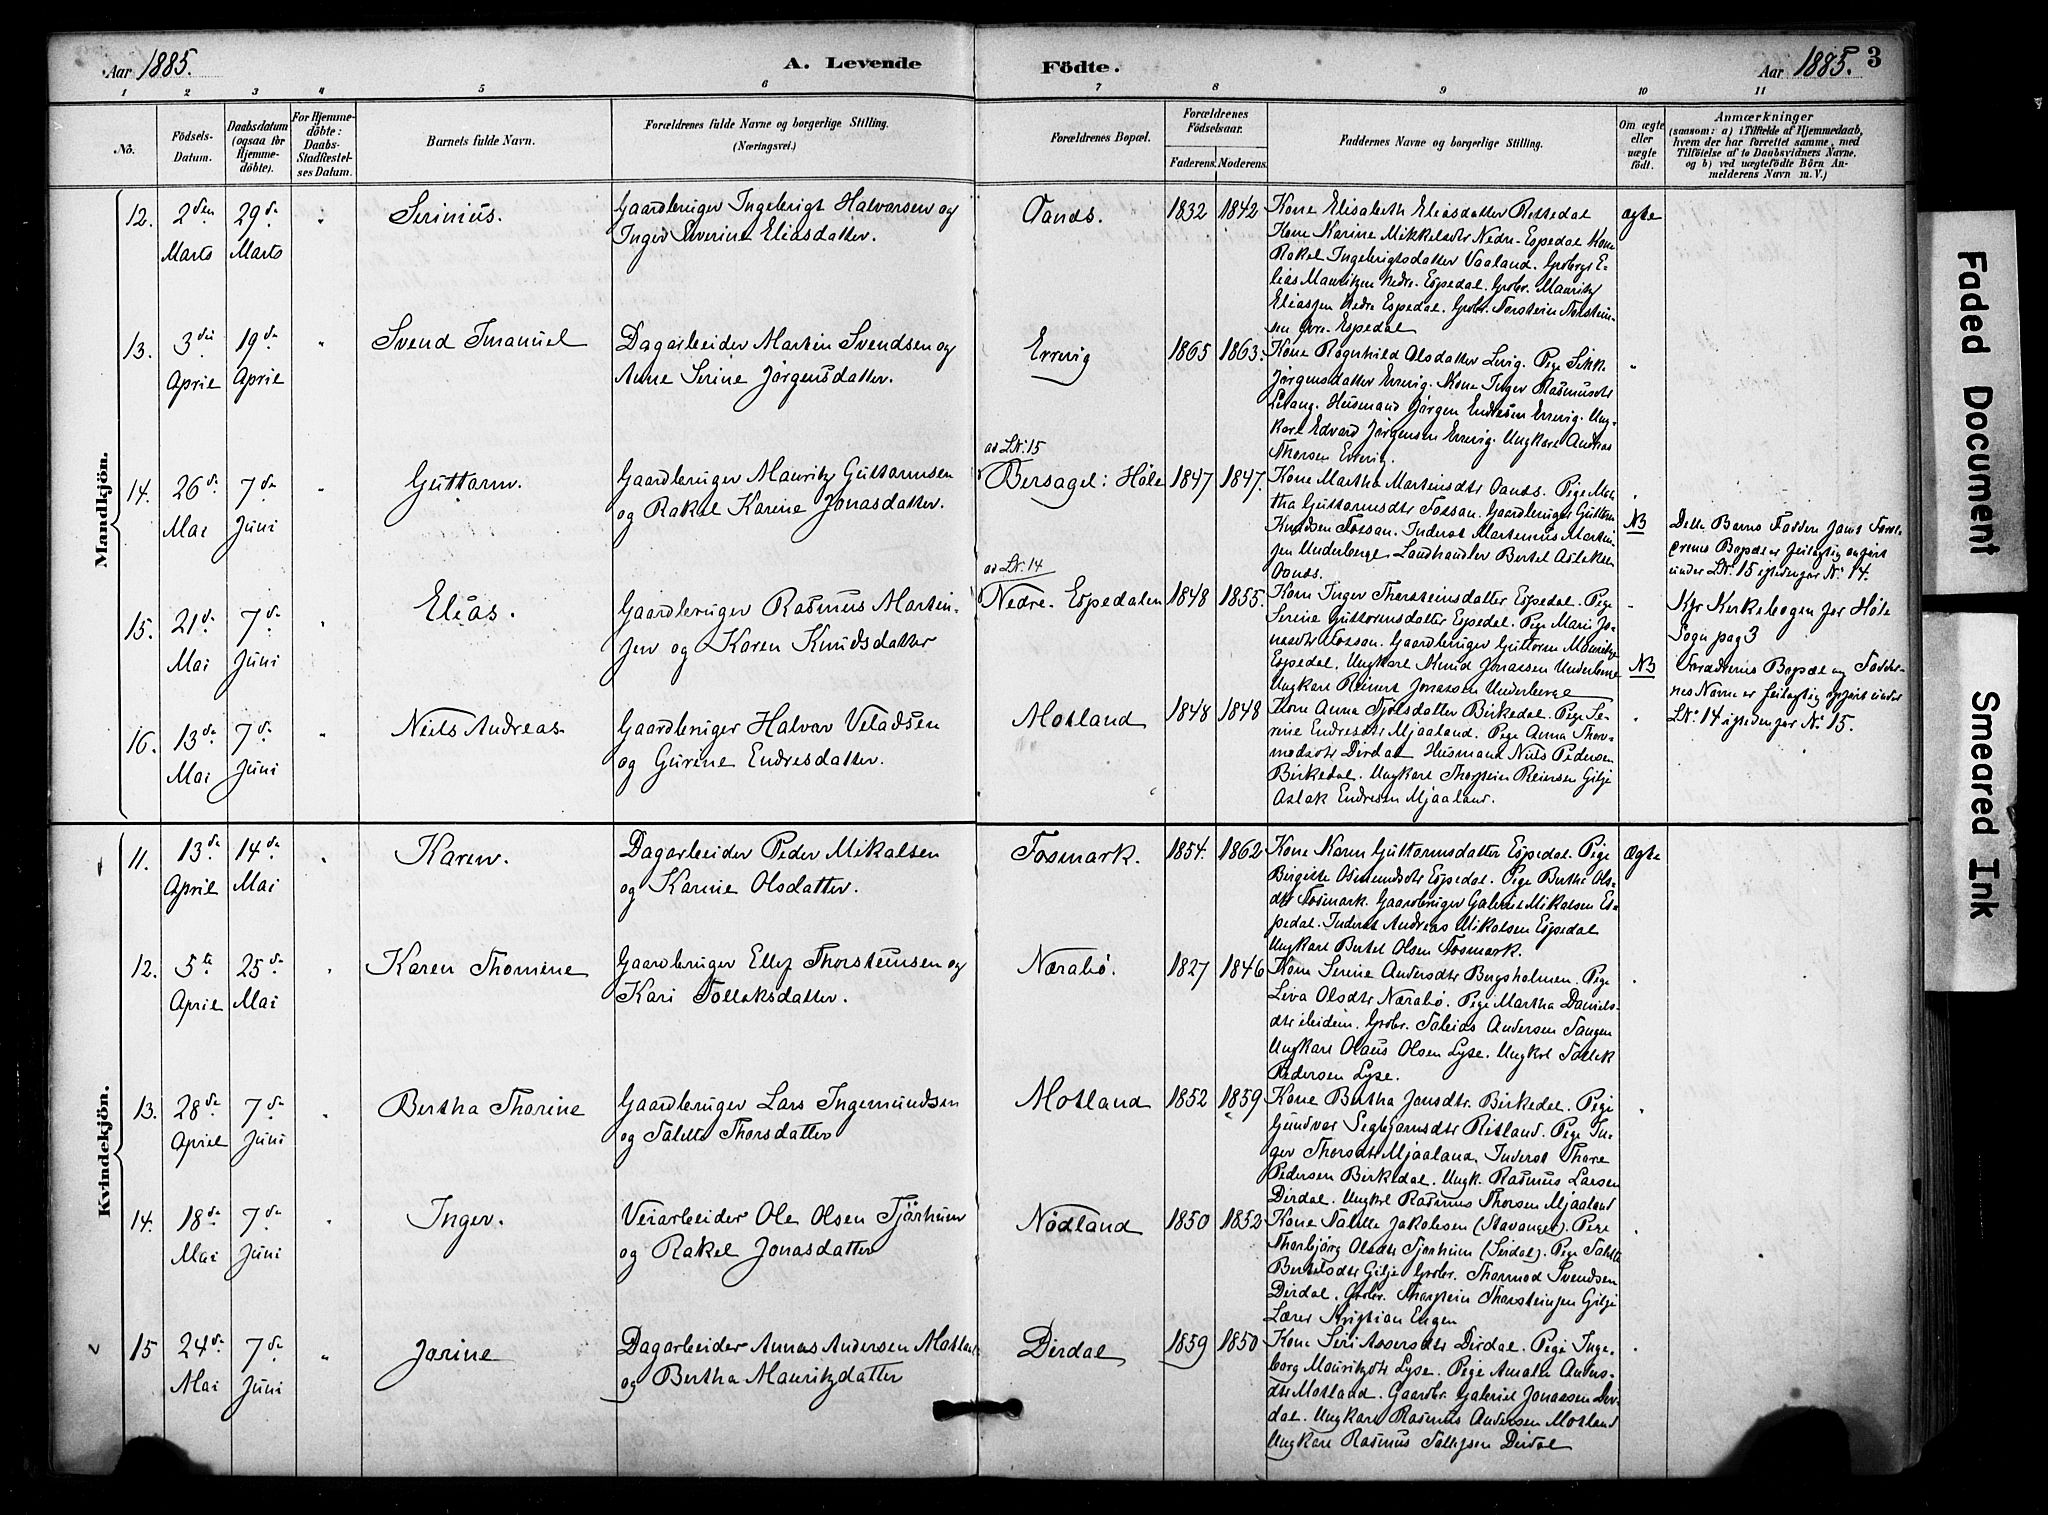 Aar 1885. A. Levende Födte. Aar 1885. 3
1 2 3 4 5 6 7 8 9 10 11
No.
Födsels-
Datum.
Daabsdatum
(ogsaa for
Hjemme-
döbte).
For Hjemme-
döbte:
Daabs-
Stadfæstel-
ses Datum.
Barnets fulde Navn.
Forældrenes fulde Navne og borgerlige Stilling.
(Næringsvei.)
Forældrenes Bopæl.
Forældrenes
Födselsaar.
Faderens. Moderens.
Faddernes Navne og borgerlige Stilling.
Om ægte
eller
uægte
födt.
Anmærkninger
(saasom: a) i Tilfælde af Hjemmedaab,
hvem der har forrettet samme, med
Tilföielse af to Daabsvidners Navne,
og b) ved uægtefödte Börn An-
melderens Navn m. V.)
Mandkjön.
12. 2den Marts 29de Marts " Serinius.
Gaardbruger Ingebrigt Halvorsen og
Inger Severine Eliasdatter.
Oands. 1832 1842
Kone Elisabeth Eliasdatter Rettedal
Kone Karine Mikkelsdtr Nedre-Espedal Kone
Rakel Ingebrigtsdatter Vaaland. Grdbrgr E-
lias Mauritzen Nedre-Espedal. Grdbr. Mauritz
Eliassen Nedre Espedal. Grdbr. Torstein Torstein-
sen Øvre-Espedal
ægte
13. 3die April 19de April " Svend Imanuel
Dagarbeider Martin Svendsen og
Anne Serine Jørgensdatter.
Errevig 1865 1863.
Kone Ragnhild Olsdatter Levig. Pige Sikk.
Jørgensdatter Errevig. Kone Inger Rasmusdtr
Levang. Husmand Jørgen Endresen Errevig. Ung-
karl Edvard Jørgensen Errevig. Ungkarl Andreas
Thorsen Errevig.
"
14. 26de Mai 7de Juni " Guttorm.
Gaardbruger Mauritz Guttormsen
og Rakel Karine Jonasdatter.
ad LN. 15
Bersagel: Høle 1847 1847.
Kone Martha Martinsdtr Oands. Pige Mar-
tha Guttormsdtr Fossan. Gaardbruger Guttorm
Knudsen Fossan. Inderst Martinius Martin-
sen Underberge Landhandler Bertel Aslaksen
Oands.
NB Dette Barns Faddere samt Foræl-
drenes Bopæl er feilagtig anført
under LN. 15 istedenfor N: 14.
15. 21de Mai 7de Juni " Elias.
Gaardbruger Rasmus Martin-
sen og Karen Knudsdatter
ad LN. 14
Nedre-Espedalen 1848 1855.
Kone Inger Thorsteinsdatter Espedal. Pige
Serine Guttormsdatter Espedal. Pige Mari Jo-
nasdtr Fossan. Gaardbruger Guttorm Mauritz
Espedal. Ungkarl Knud Jonassen Underberge
Ungkarl Reinert Jonassen Underberge
Kfr Kirkebogen for Høle
Sogn pag 3
NB Forældrenes Bopæl og Fadder-
nes Navne er feilagtig opført under
LN: 14 istedenfor N: 15.
16. 13de Mai 7de Juni " Niels Andreas
Gaardbruger Halvor Veladsen
og Gurine Endresdatter.
Motland 1848 1848
Kone Anna Njelsdatter Birkedal. Pige Se-
rine Endresdtr Mjaaland. Pige Anna Thor-
modsdtr Dirdal Husmand Niels Pedersen
Birkedal. Ungkarl Thorstein Reinsen Gilje
Aslak Endresen Mjaaland.
Kvindekjön.
11. 13de April 14de Mai " Karen.
Dagarbeider Peder Mikalsen
og Karine Olsdatter.
Fosmark. 1854. 1862
Kone Karen Guttormsdatter Espedal. Pige
Bergitte Osmundsdtr Espedal. Pige Berthe Ols-
dtr Fosmark. Gaardbruger Gabriel Mikalsen Es-
pedal. Inderst Andreas Mikalsen Espedal
Ungkarl Bertel Olsen Fosmark.
Ægte
12. 5te April 25de Mai " Karen Thomine
Gaardbruger Ellef Thorsteinsen og
Kari Tollaksdatter.
Nærabø. 1827 1846
Kone Serine Andersdtr Bergsholmen. Pige
Liva Olsdtr Nærabø. Pige Martha Daniels-
dtr ibidem. Grdbr. Tobias Andersen Tangen
Ungkarl Olaus Olsen Lyse. Ungkrl Tollak
Pedersen Lyse.
13. 28de April 7de Juni " Bertha Thorine
Gaardbruger Lars Ingemundsen
og Talette Thorsdatter
Motland 1852 1859
Kone Bertha Jonsdtr. Birkedal. Pige
Gundvor Segbjørnsdtr Ritland. Pige In-
ger Thorsdtr Mjaaland. Inderst Thore
Pedersen Birkedal. Ungk. Rasmus Larsen
Dirdal. Ungkrl Rasmus Thorsen Mjaaland
14. 18de Mai 7de Juni " Inger.
Veiarbeider Ole Olsen Tjørhum
og Rakel Jonasdatter
Nødland 1850 1852
Kone Talette Jakobsen (Stavanger). Pige
Thorbjørg Olsdtr Tjørhum (Sirdal). Pige Talette
Bertelsdtr Gilje Grdbr. Thormod Svendsen
Dirdal. Grdbr. Thorstein Thorsteinsen Gilje
Lærer Kristian Engen
15 24de Mai 7de Juni " Jorine
Dagarbeider Annas Andersen Motland
og Bertha Mauritzdatter
Dirdal 1859 1850
Kone Siri Assersdtr Dirdal. Pige Inge-
borg Mauritzdtr Lyse. Pige Amalie Anders-
dtr Motland. Gaardbr. Gabriel Jonassen Dir-
dal. Ungkarl Rasmus Andersen Motland
Ungkarl Rasmus Tollefsen Dirdal
Faded Document
Smeared Ink